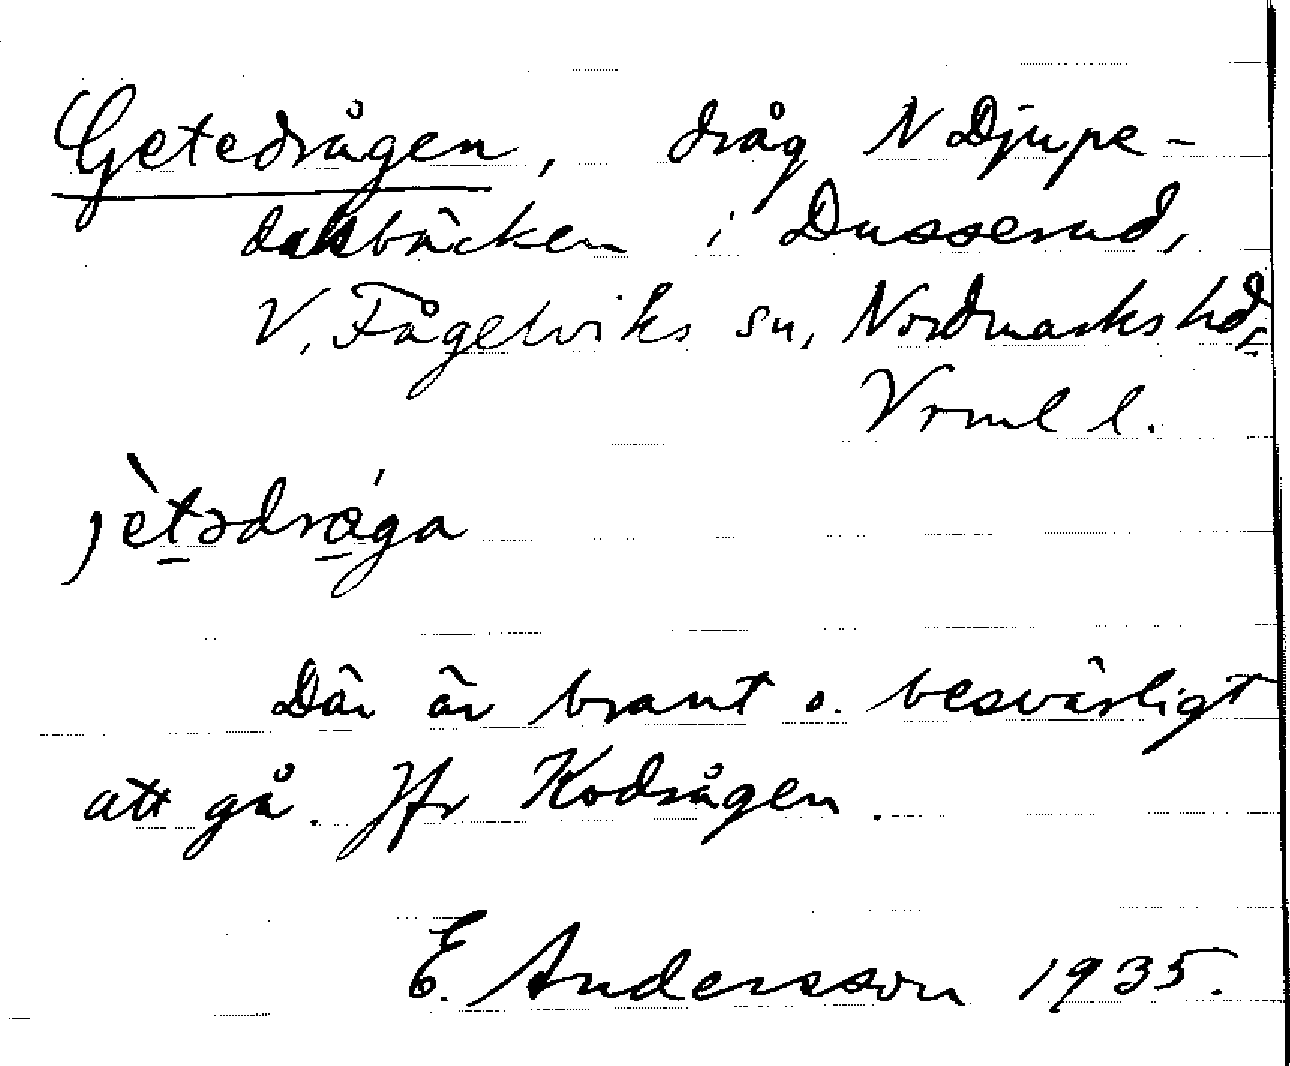 Getedrågen, dråg N Djupe-
dalsbäcken i Dusserud,
V. Fågelviks sn, Nordmarks hd,
Vrml l.
jètədrǻga
Där är brant o. besvärligt
att gå. Jfr Kodrågen.
E. Andersson 1935.